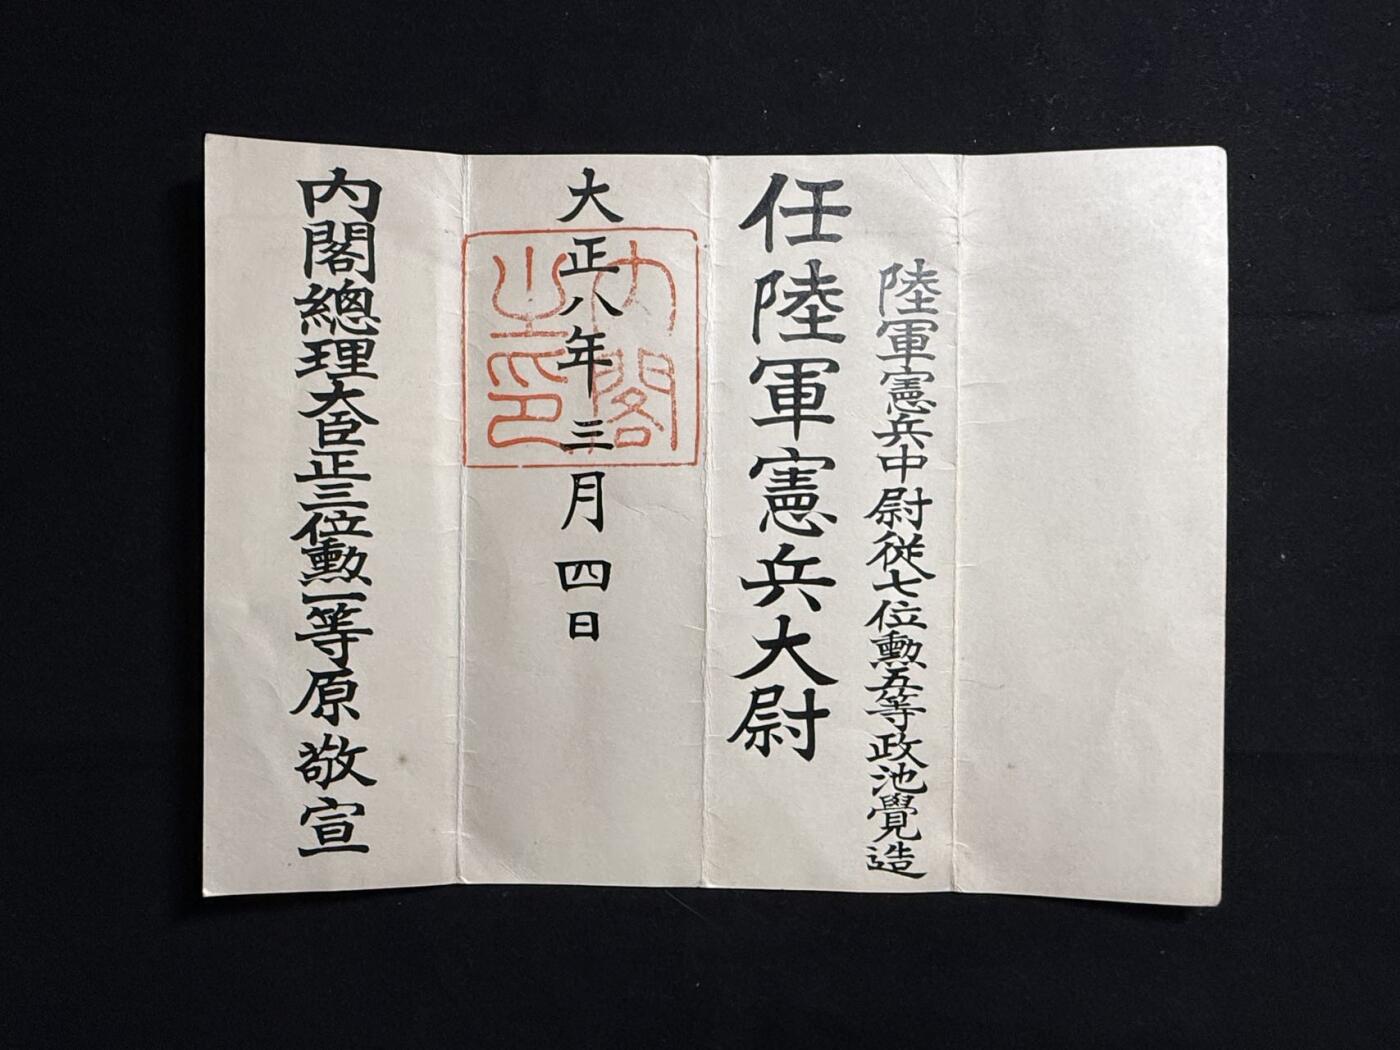 陸軍憲兵中尉從七位勳五等政池覺造
任陸軍憲兵大尉
大正八年三月四日
內閣之印
内閣總理大臣正三位勳一等原敬宣